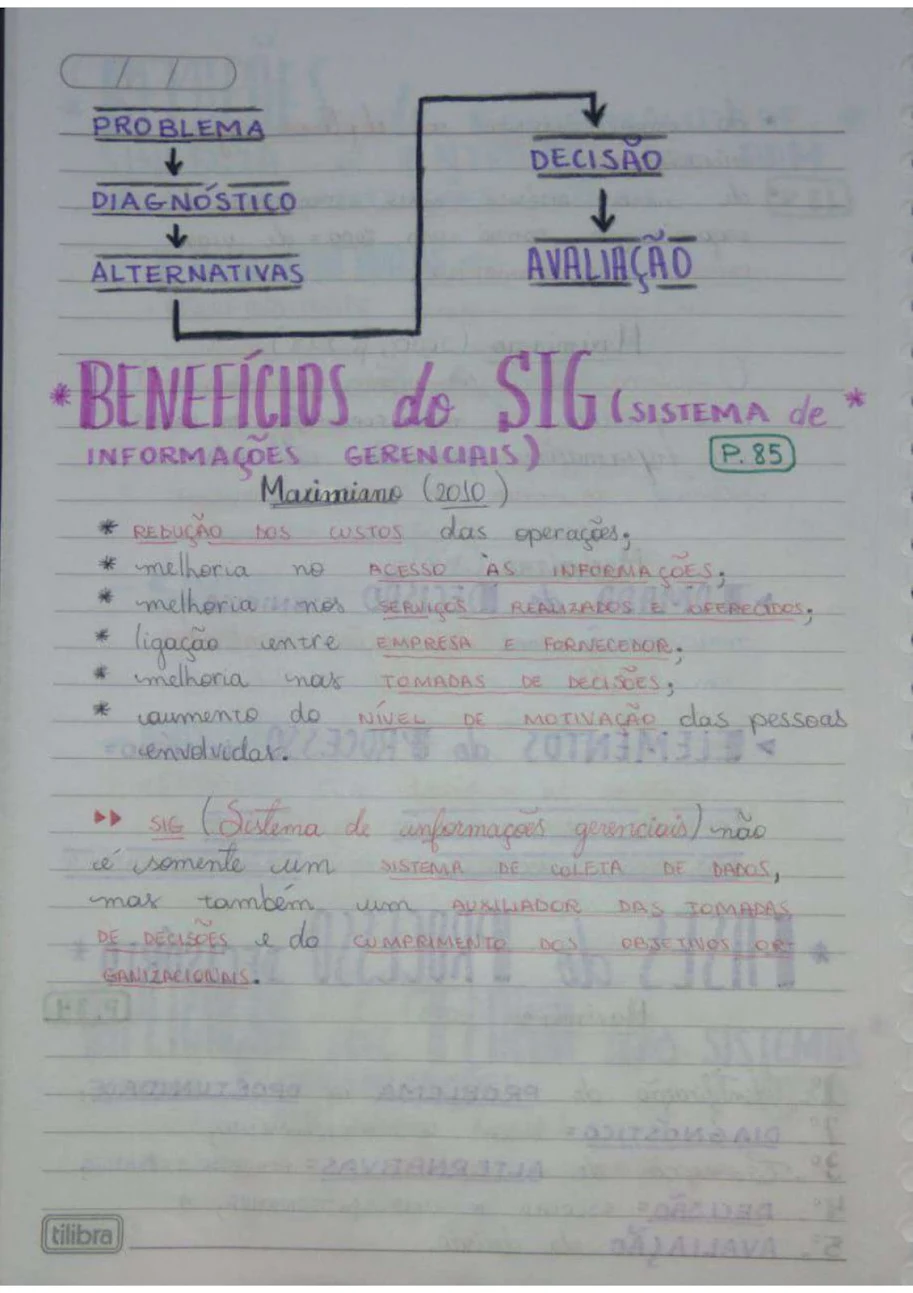 / /
PROBLEMA
DIAGNÓSTICO
ALTERNATIVAS
DECISÃO
AVALIAÇÃO
* BENEFÍCIOS do SIG (SISTEMA de *
INFORMAÇÕES GERENCIAIS) P. 85
Maximiano (2010)
* REDUÇÃO DOS CUSTOS das operações;
* melhoria no ACESSO ÀS INFORMAÇÕES;
* melhoria nos SERVIÇOS REALIZADOS E OFERECIDOS;
* ligação entre EMPRESA E FORNECEDOR;
* melhoria nas TOMADAS DE DECISÕES;
* aumento do NÍVEL DE MOTIVAÇÃO das pessoas
envolvidas.
▸▸ SIG (Sistema de informações gerenciais) não
é somente um SISTEMA DE COLETA DE DADOS,
mas também um AUXILIADOR DAS TOMADAS
DE DECISÕES e do CUMPRIMENTO DOS OBJETIVOS OR-
GANIZACIONAIS.
tilibra